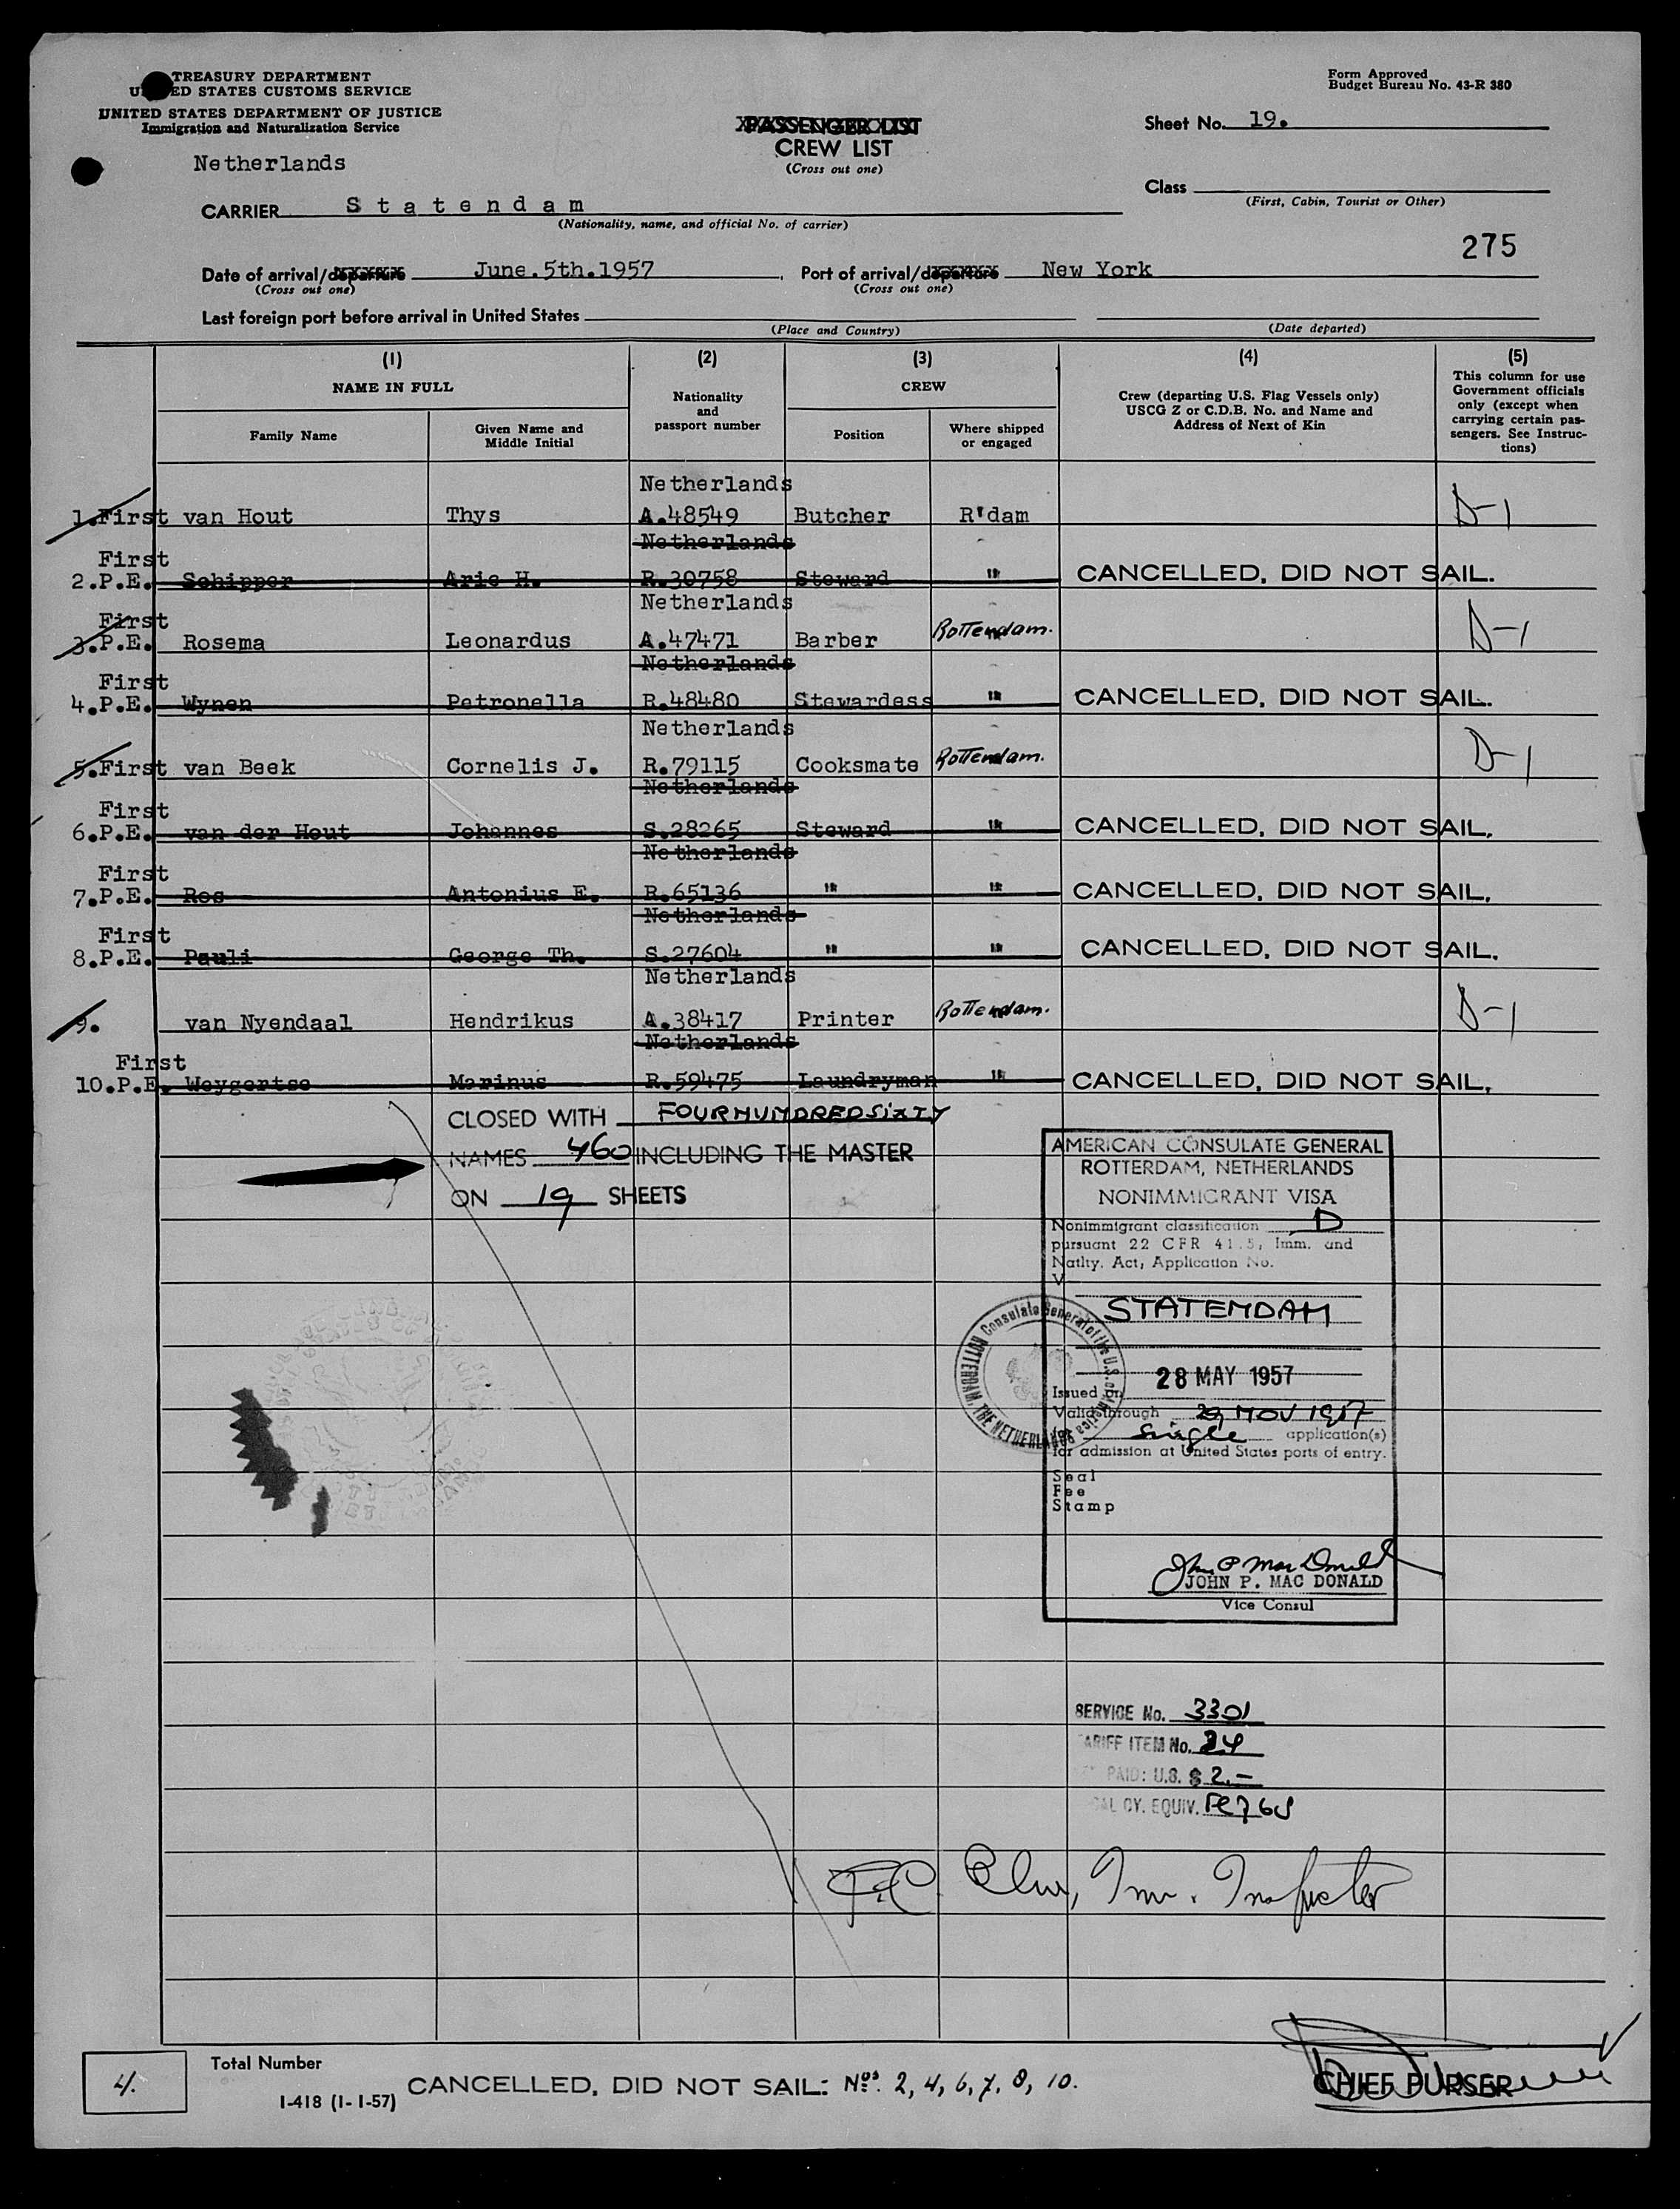 TREASURY DEPARTMENT
ED STATES CUSTOMS SERVICE
UNITED STATES DEPARTMENT OF JUSTICE
Immigration and Naturalization Service
Form Approved
Budget Bureau No. 43-R 380
PASSENGER LIST
CREW LIST
(Cross out one)
Sheet No. 19.
Netherlands
CARRIER Statendam
(Nationality, name, and official No. of carrier)
Class
(First, Cabin, Tourist or Other)
275
Date of arrival/departure June.5th.1957
(Cross out one)
Port of arrival/departure New York
(Cross out one)
Last foreign port before arrival in United States
(Place and Country)
(Date departed)
(1) (2) (3) (4) (5)
NAME IN FULL
Family Name
Given Name and
Middle Initial
Nationality
and
passport number
CREW
Position
Where shipped
or engaged
Crew (departing U.S. Flag Vessels only)
USCG Z or C.D.B. No. and Name and
Address of Next of Kin
This column for use
Government officials
only (except when
carrying certain pas-
sengers. See Instruc-
tions)
Netherlands
1.First van Hout Thys A.48549 Butcher R'dam D-1
First Netherlands
2.P.E. Schipper Arie H. R.30758 Steward " CANCELLED, DID NOT SAIL.
First Netherlands
3.P.E. Rosema Leonardus A.47471 Barber Rotterdam. D-1
First Netherlands
4.P.E. Wynen Petronella R.48480 Stewardess " CANCELLED, DID NOT SAIL.
Netherlands
5.First van Beek Cornelis J. R.79115 Cooksmate Rotterdam. D-1
First Netherlands
6.P.E. van der Hout Johannes S.28265 Steward " CANCELLED, DID NOT SAIL.
First Netherlands
7.P.E. Ros Antonius E. R.65136 " " CANCELLED, DID NOT SAIL.
First Netherlands
8.P.E. Pauli George Th. S.27604 " " CANCELLED, DID NOT SAIL.
Netherlands
9. van Nyendaal Hendrikus A.38417 Printer Rotterdam. D-1
First Netherlands
10.P.E. Weygertse Marinus R.59475 Laundryman " CANCELLED, DID NOT SAIL.
CLOSED WITH FOURHUNDREDSIXTY
NAMES 460 INCLUDING THE MASTER
ON 19 SHEETS
AMERICAN CONSULATE GENERAL
ROTTERDAM, NETHERLANDS
NONIMMIGRANT VISA
Nonimmigrant classification D
pursuant 22 CFR 41.5, Imm. and
Natlty. Act, Application No.
V
STATENDAM
28 MAY 1957
Issued on
Valid through 29 NOV 1957
for single application(s)
for admission at United States ports of entry.
Seal
Fee
Stamp
JOHN P. MAC DONALD
Vice Consul
Consulate General of the U.S. of America
ROTTERDAM, THE NETHERLANDS
SERVICE No. 3301
TARIFF ITEM No. 24
PAID: U.S. $ 2.-
CAL CY. EQUIV.
Imm. Inspector
4.
Total Number
I-418 (1-1-57)
CANCELLED, DID NOT SAIL: Nos. 2, 4, 6, 7, 8, 10.
CHIEF PURSER